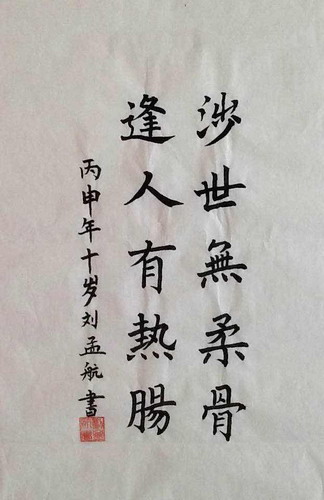 涉世無柔骨
逢人有熱腸
丙申年十岁刘孟航書